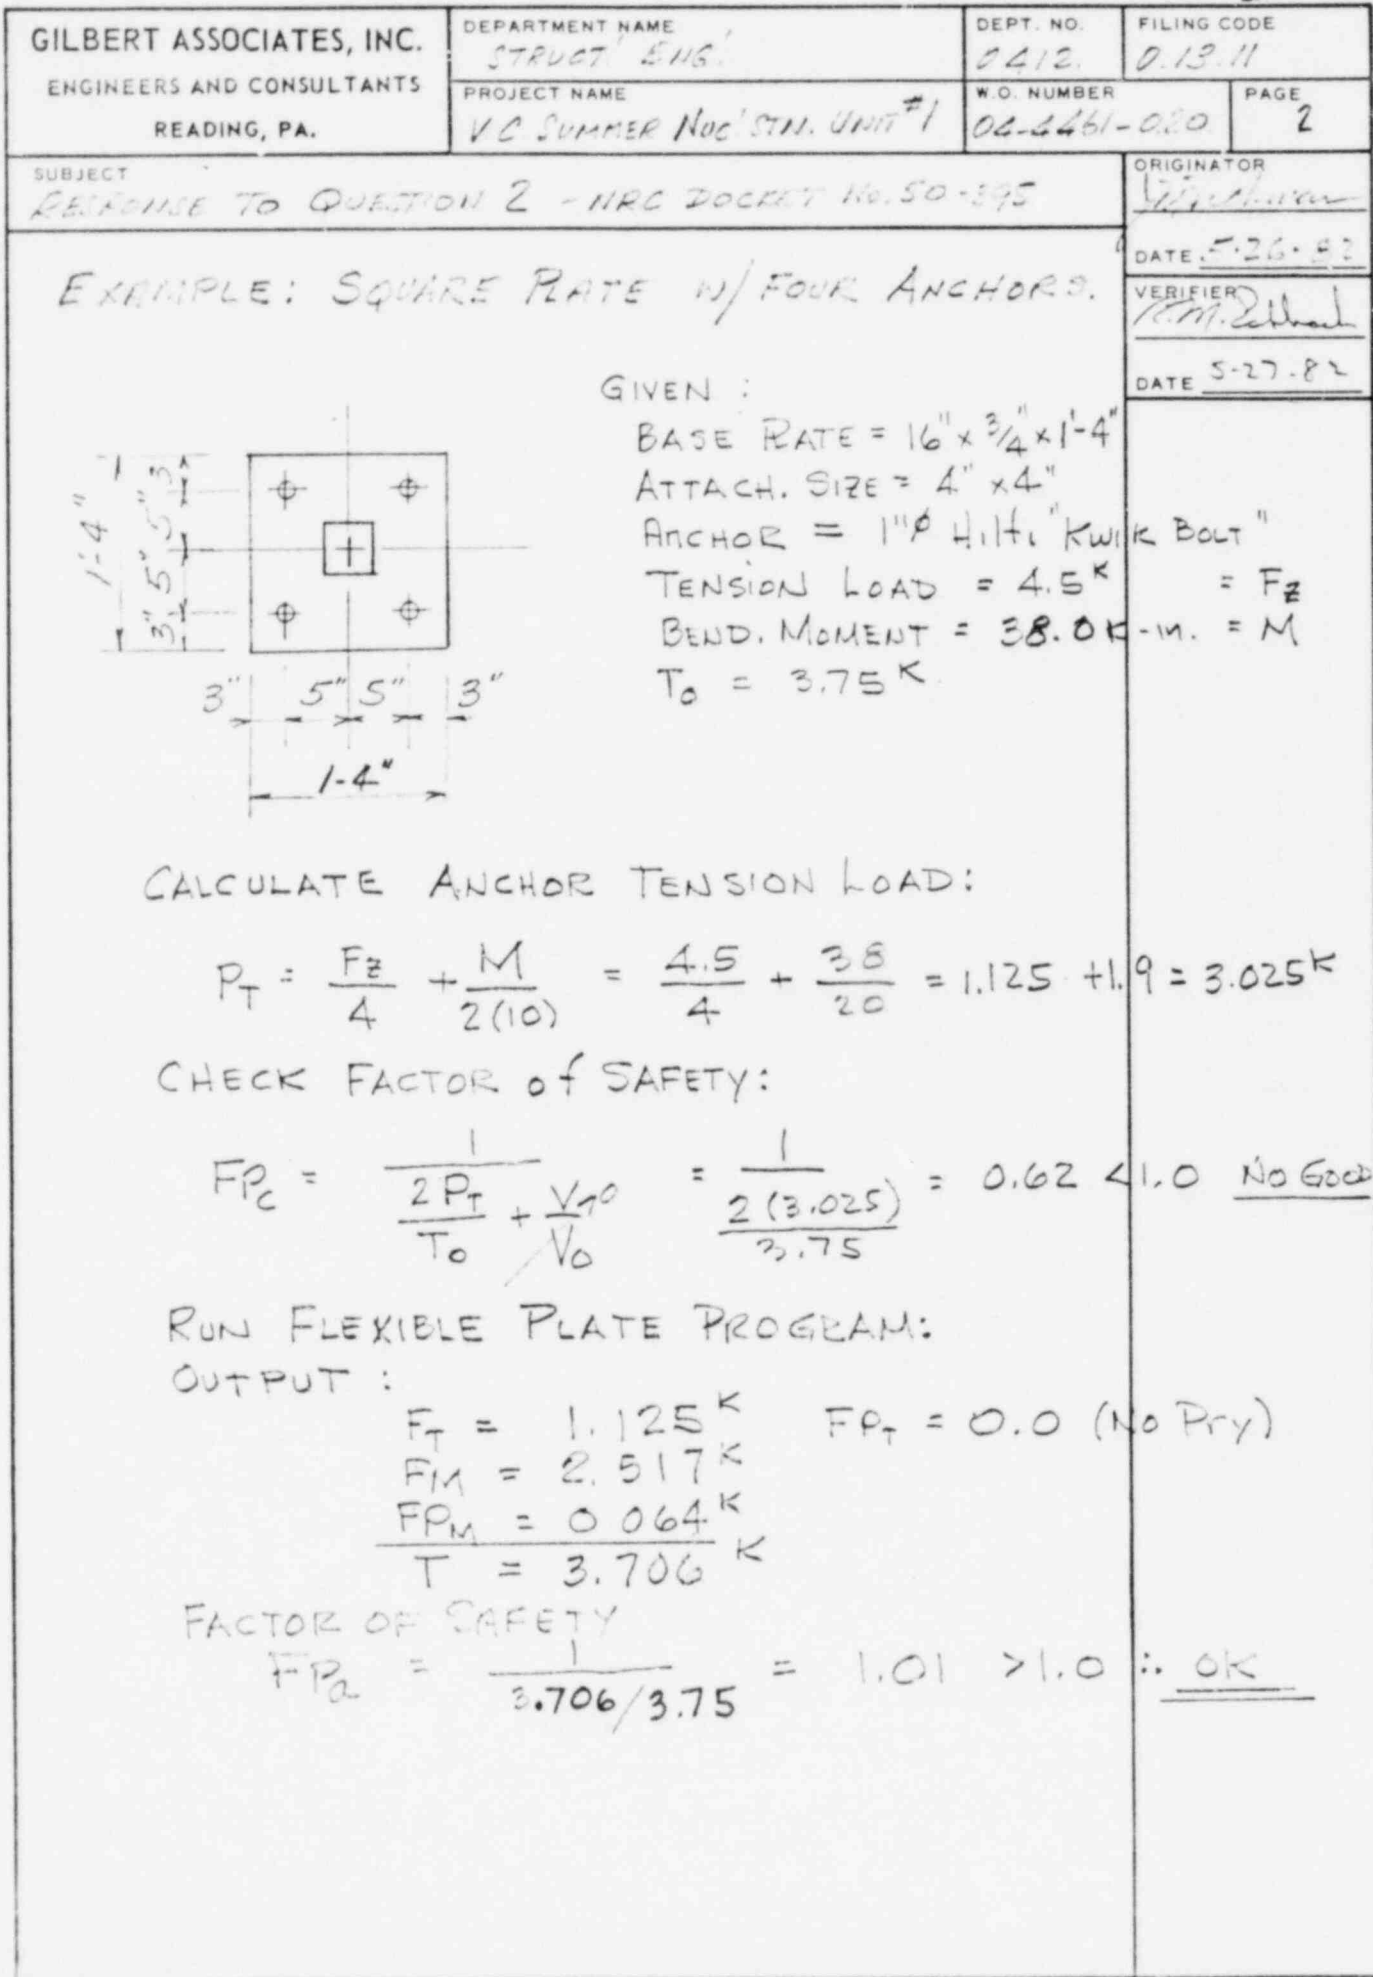 GILBERT ASSOCIATES, INC.
ENGINEERS AND CONSULTANTS
READING, PA.
DEPARTMENT NAME
STRUCT. ENG.
DEPT. NO.
0412.
FILING CODE
0.13.11
PROJECT NAME
V.C. SUMMER NUC. STN. UNIT #1
W.O. NUMBER
04-4461-020
PAGE
2
SUBJECT
RESPONSE TO QUESTION 2 - NRC DOCKET NO. 50-395
ORIGINATOR
DATE 5-26-82
VERIFIER
DATE 5-27-82
EXAMPLE: SQUARE PLATE W/ FOUR ANCHORS.
GIVEN:
BASE PLATE = 16" x 3/4" x 1'-4"
ATTACH. SIZE = 4" x 4"
ANCHOR = 1"φ Hilti "KWIK BOLT"
TENSION LOAD = 4.5K = Fz
BEND. MOMENT = 38.0 K-in. = M
To = 3.75K
1'-4"
3" 5" 5" 3"
3" 5" 5" 3"
1-4"
CALCULATE ANCHOR TENSION LOAD:
PT = Fz/4 + M/2(10) = 4.5/4 + 38/20 = 1.125 + 1.9 = 3.025K
CHECK FACTOR of SAFETY:
FPc = 1/(2PT/To + VT/Vo) 0 = 1/(2(3.025)/3.75) = 0.62 < 1.0 NO GOOD
RUN FLEXIBLE PLATE PROGRAM:
OUTPUT:
FT = 1.125K FPT = 0.0 (No Pry)
FM = 2.517K
FPM = 0.064K
T = 3.706K
FACTOR OF SAFETY
FPa = 1/(3.706/3.75) = 1.01 > 1.0 ∴ OK